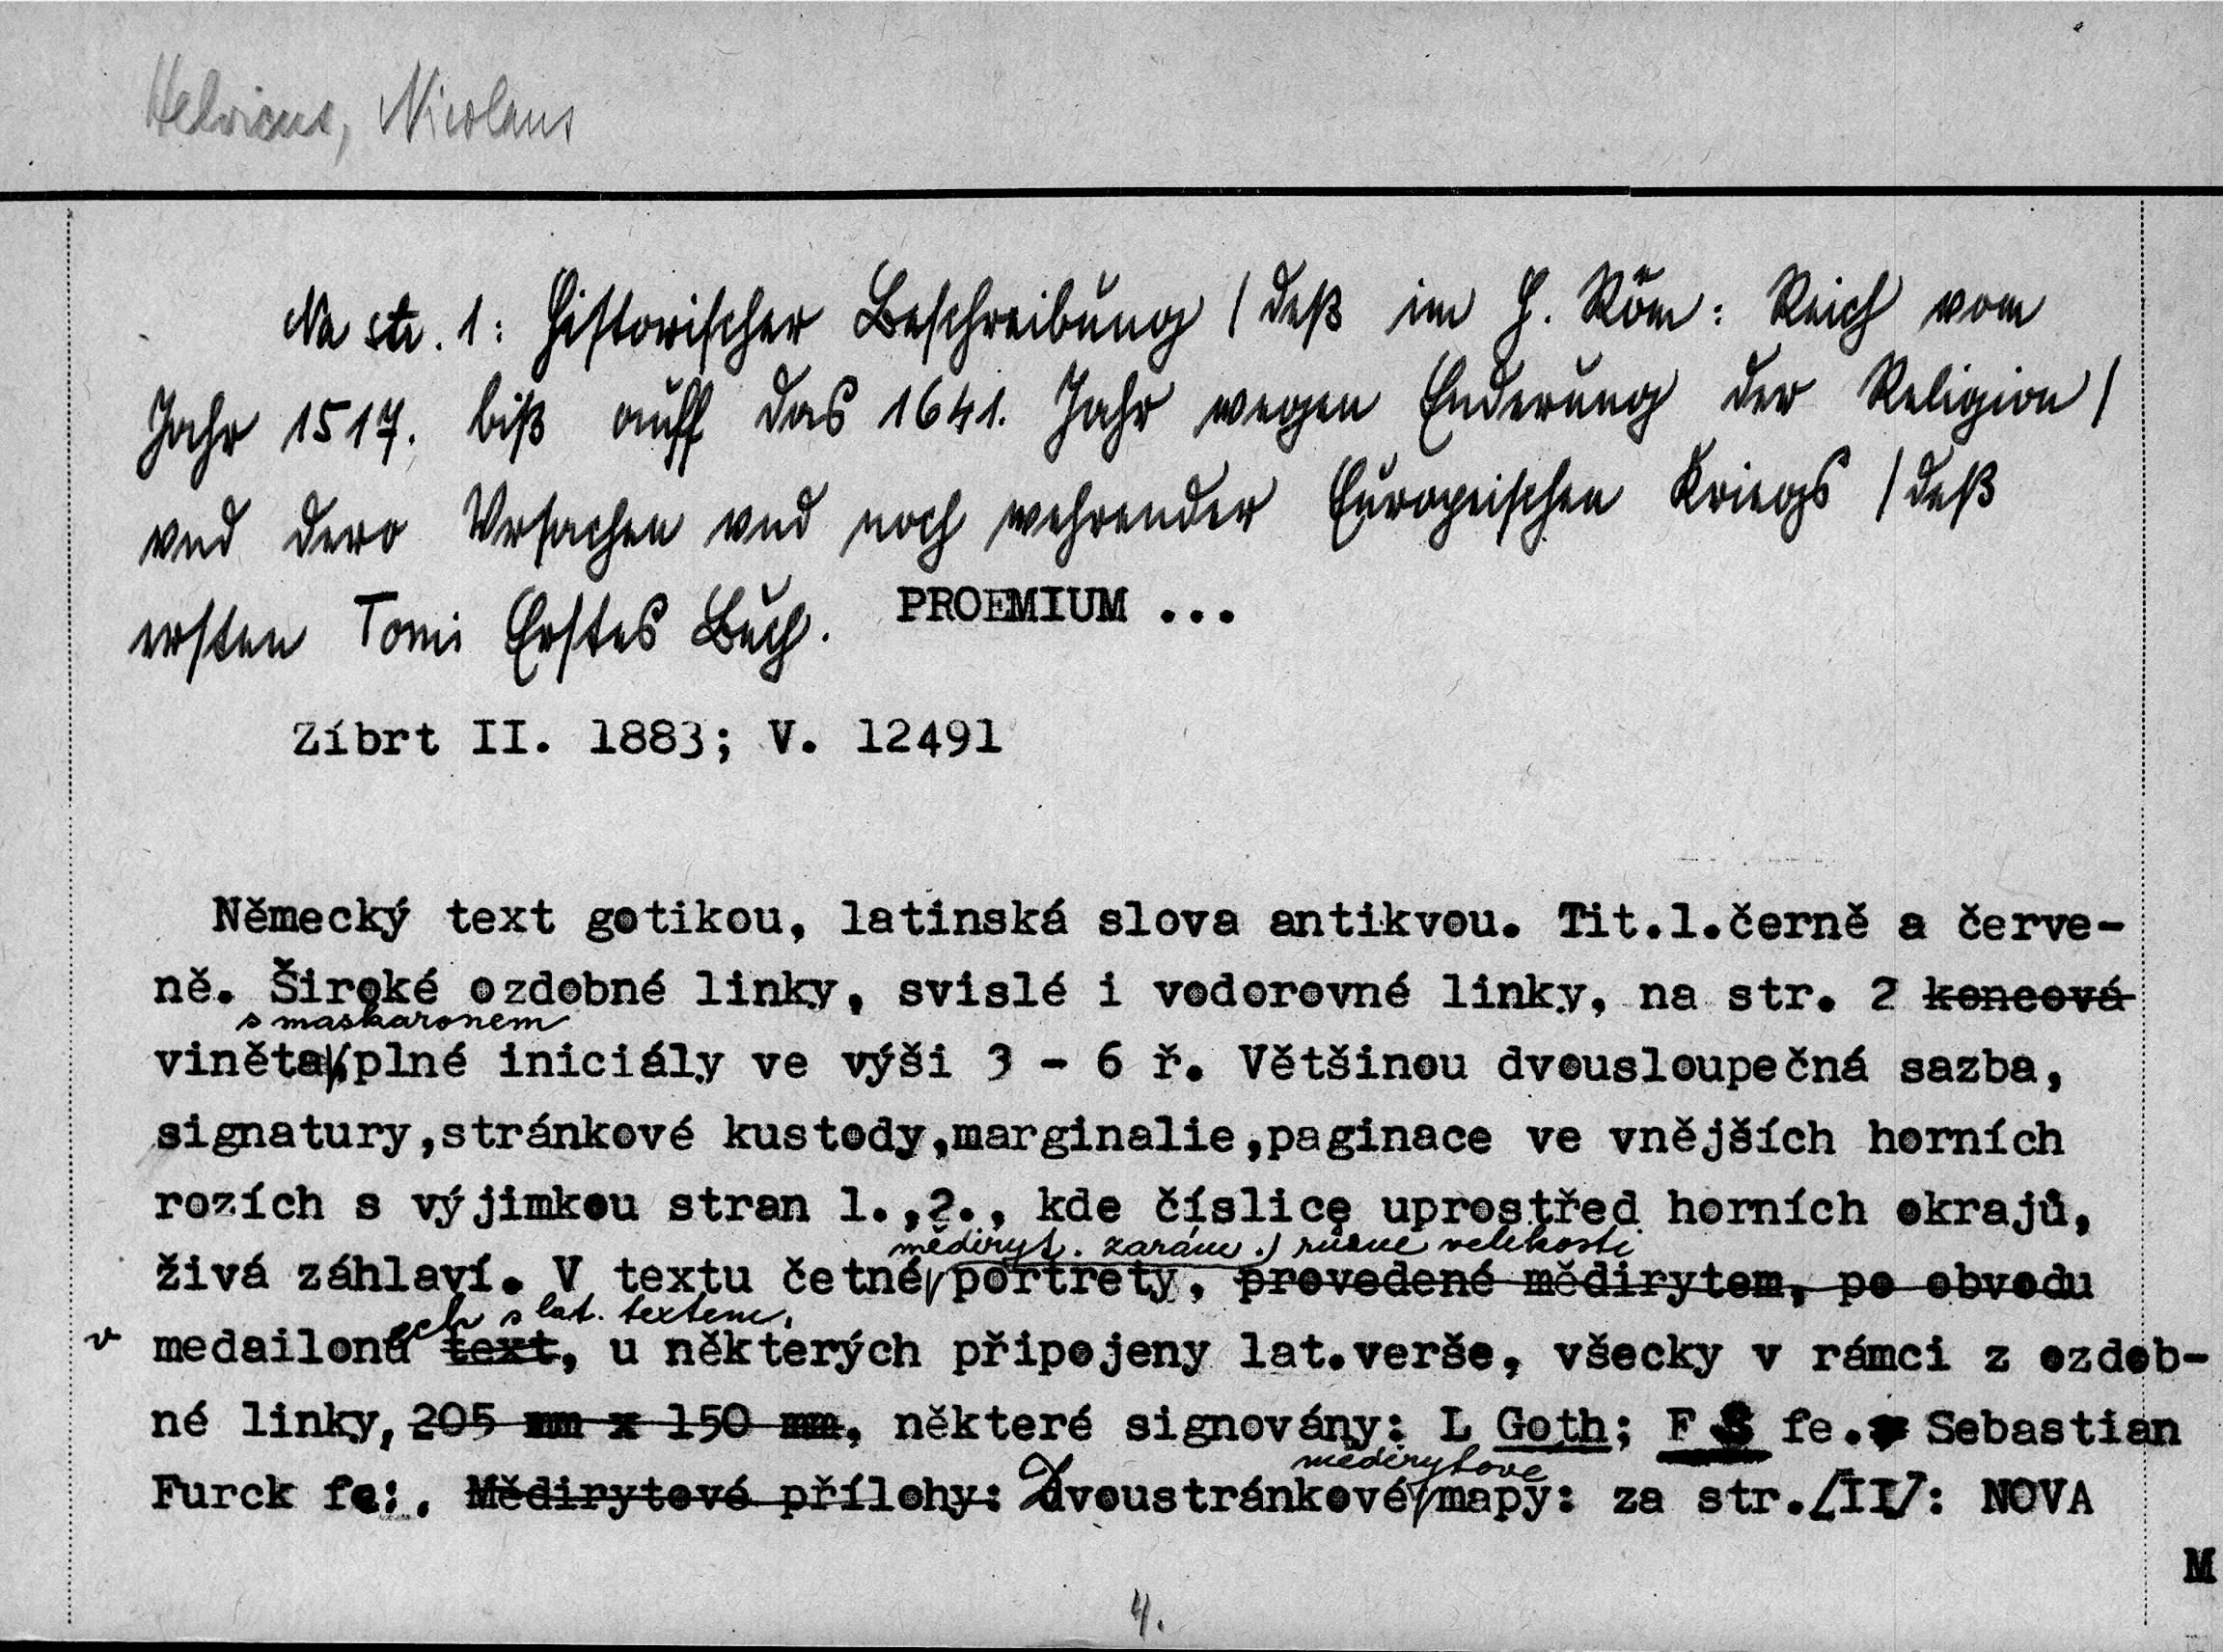 Helvicus, Nicolaus
Na str. 1: Historischer Beschreibung / deß im H. Röm: Reich vom
Jahr 1517. biß auff das 1641. Jahr wegen Enderung der Religion /
vnd dero Vrsachen vnd noch wehrender Europeischen Kriegs / deß
ersten Tomi Erstes Buch. PROEMIUM ...
Zíbrt II. 1883; V. 12491
Německý text gotikou, latinská slova antikvou. Tit.l.černě a červe-
ně. Široké ozdobné linky, svislé i vodorovné linky, na str. 2 koncová
s maskaronem
viněta, plné iniciály ve výši 3 - 6 ř. Většinou dvousloupečná sazba,
signatury,stránkové kustody,marginalie,paginace ve vnějších horních
rozích s výjimkou stran 1.,2., kde číslice uprostřed horních okrajů,
mědiryt. zarám.) různé velikosti
živá záhlaví. V textu četné portrety, provedené mědirytem, po obvodu
ech s lat. textem,
v medailonu text, u některých připojeny lat.verše, všecky v rámci z ozdob-
né linky, 205 mm x 150 mm, některé signovány: L Goth; F S fe. Sebastian
mědirytové
Furck fe:. Mědirytové přílohy: Dvoustránkové mapy: za str. [II]: NOVA
M
4.